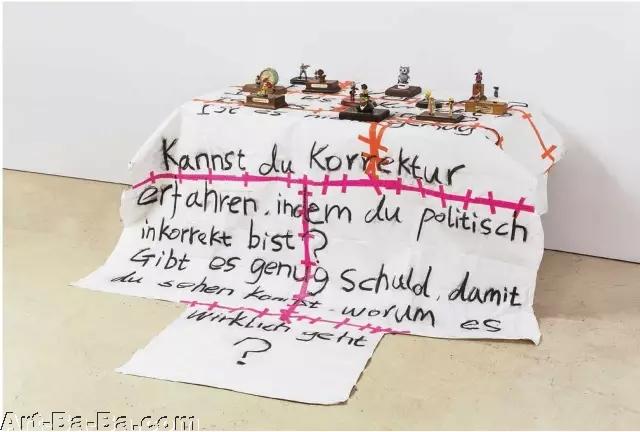 Ist es
Kannst du Korrektur
erfahren, indem du politisch
inkorrekt bist?
Gibt es genug Schuld, damit
du sehen kannst worum es
wirklich geht
?
Art-Ba-Ba.com